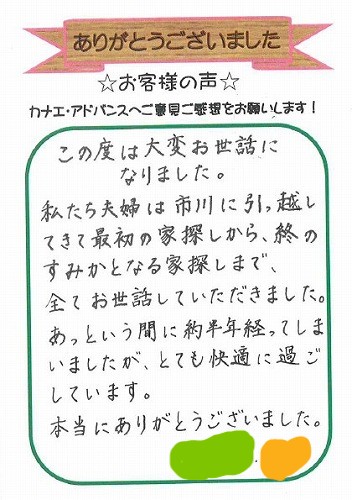 ありがとうございました
☆お客様の声☆
カナエ・アドバンスへご意見ご感想をお願いします!
この度は大変お世話に
なりました。
私たち夫婦は市川に引っ越し
てきて最初の家探しから、終の
すみかとなる家探しまで、
全てお世話していただきました。
あっという間に約半年経ってしま
いましたが、とても快適に過ご
しています。
本当にありがとうございました。